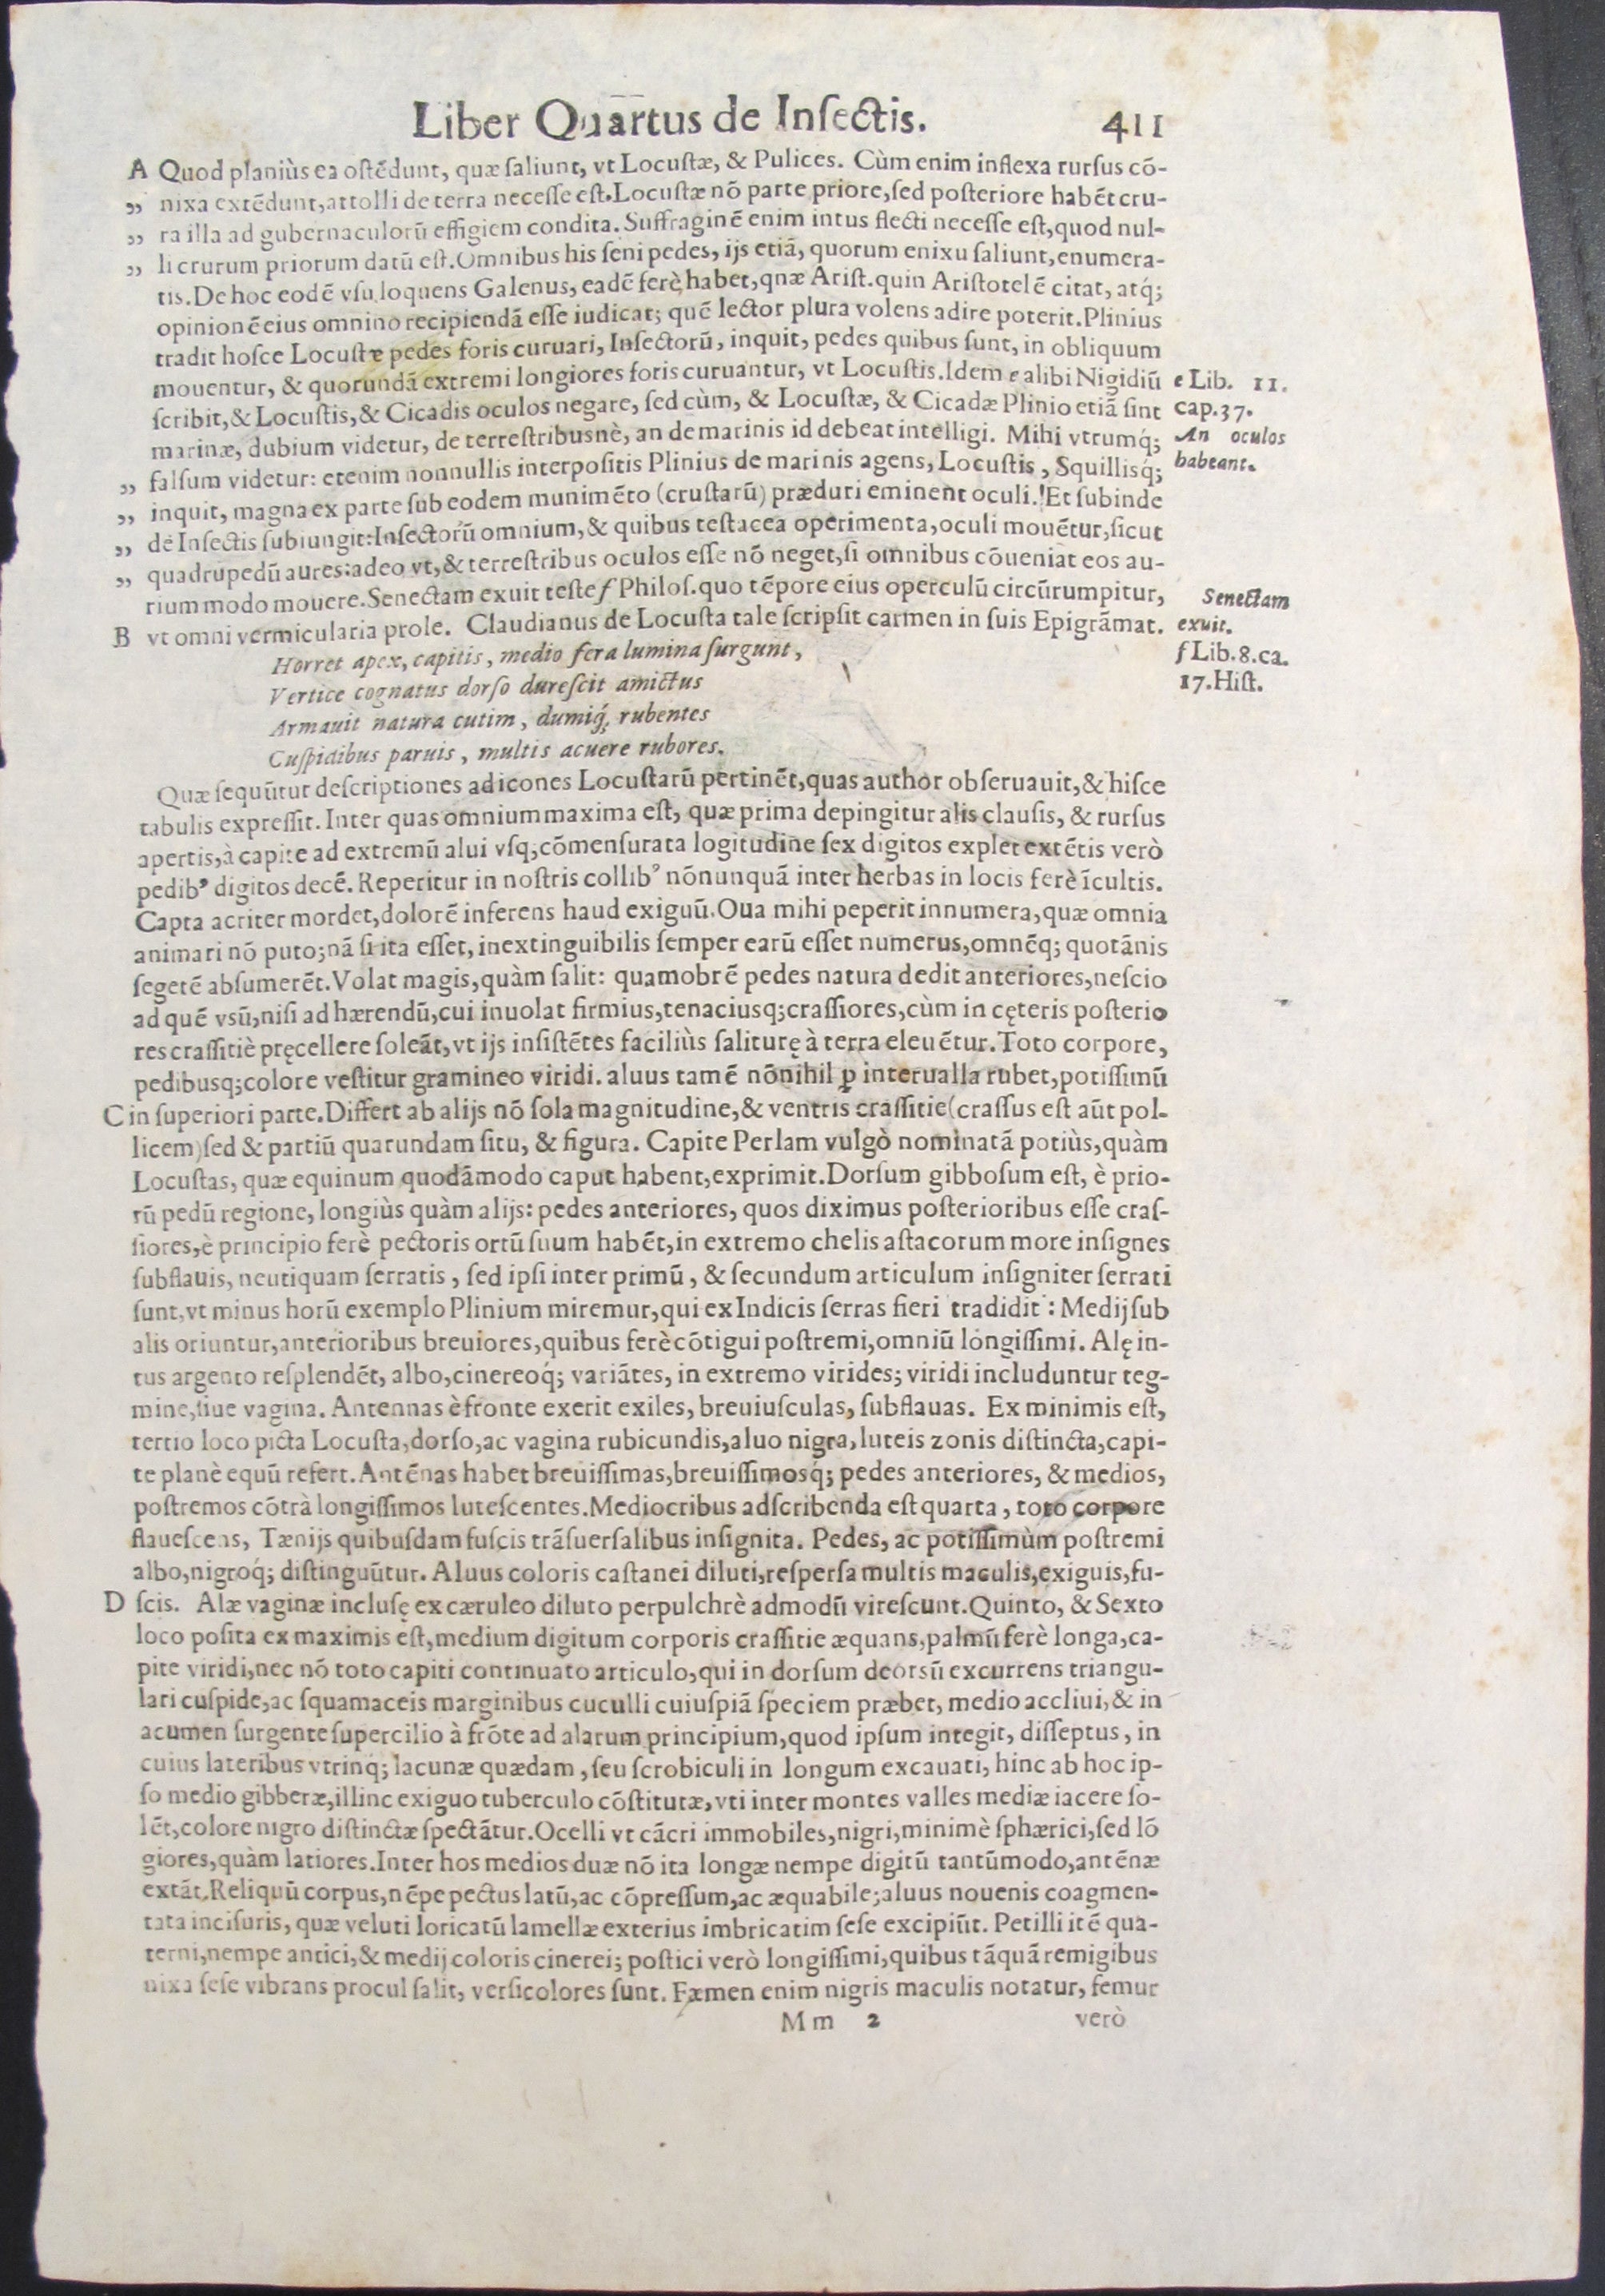 Liber Quartus de Inſectis. 411
A Quod planiùs ea oſtẽdunt, quæ ſaliunt, vt Locuſtæ, & Pulices. Cùm enim inflexa rurſus cõ-
„ nixa extẽdunt, attolli de terra neceſſe eſt. Locuſtæ nõ parte priore, ſed poſteriore habẽt cru-
„ ra illa ad gubernaculorũ effigiem condita. Suffraginẽ enim intus flecti neceſſe eſt, quod nul-
„ li crurum priorum datũ eſt. Omnibus his ſeni pedes, ijs etiã, quorum enixu ſaliunt, enumera-
tis. De hoc eodẽ vſu loquens Galenus, eadẽ ferè habet, qnæ Ariſt. quin Ariſtotelẽ citat, atq́;
opinionẽ eius omnino recipiendã eſſe iudicat; quẽ lector plura volens adire poterit. Plinius
tradit hoſce Locuſtæ pedes foris curuari, Inſectorũ, inquit, pedes quibus ſunt, in obliquum
mouentur, & quorundã extremi longiores foris curuantur, vt Locuſtis. Idem e alibi Nigidiũ
ſcribit, & Locuſtis, & Cicadis oculos negare, ſed cùm, & Locuſtæ, & Cicadæ Plinio etiã ſint
marinæ, dubium videtur, de terreſtribusnè, an de marinis id debeat intelligi. Mihi vtrumq́;
„ falſum videtur: etenim nonnullis interpoſitis Plinius de marinis agens, Locuſtis, Squillisq́;
„ inquit, magna ex parte ſub eodem munimẽto (cruſtarũ) præduri eminent oculi. Et ſubinde
„ de Inſectis ſubiungit: Inſectorũ omnium, & quibus teſtacea operimenta, oculi mouẽtur, ſicut
„ quadrupedũ aures: adeo vt, & terreſtribus oculos eſſe nõ neget, ſi omnibus cõueniat eos au-
rium modo mouere. Senectam exuit teſte f Philoſ. quo tẽpore eius operculũ circũrumpitur,
B vt omni vermicularia prole. Claudianus de Locuſta tale ſcripſit carmen in ſuis Epigrãmat.
e Lib. 11.
cap. 37.
An oculos
habeant.
Senectam
exuit.
f Lib. 8. ca.
17. Hiſt.
Horret apex, capitis, medio fera lumina ſurgunt,
Vertice cognatus dorſo dureſcit amictus
Armauit natura cutim, dumiq́; rubentes
Cuſpidibus paruis, multis acuere rubores.
Quæ ſequũtur deſcriptiones ad icones Locuſtarũ pertinẽt, quas author obſeruauit, & hiſce
tabulis expreſſit. Inter quas omnium maxima eſt, quæ prima depingitur alis clauſis, & rurſus
apertis, à capite ad extremũ alui vſq; cõmenſurata logitudine ſex digitos explet extẽtis verò
pedibꝰ digitos decẽ. Reperitur in noſtris collibꝰ nõnunquã inter herbas in locis ferè ĩcultis.
Capta acriter mordet, dolorẽ inferens haud exiguũ. Oua mihi peperit innumera, quæ omnia
animari nõ puto; nã ſi ita eſſet, inextinguibilis ſemper earũ eſſet numerus, omnẽq; quotãnis
ſegetẽ abſumerẽt. Volat magis, quàm ſalit: quamobrẽ pedes natura dedit anteriores, neſcio
ad quẽ vsũ, niſi ad hærendũ, cui inuolat firmius, tenaciusq; craſſiores, cùm in cęteris poſterio
res craſſitiè pręcellere ſoleãt, vt ijs inſiſtẽtes faciliùs ſaliturę à terra eleuẽtur. Toto corpore,
pedibusq; colore veſtitur gramineo viridi. aluus tamẽ nõnihil ꝑ interualla rubet, potiſſimũ
C in ſuperiori parte. Differt ab alijs nõ ſola magnitudine, & ventris craſſitie (craſſus eſt aũt pol-
licem) ſed & partiũ quarundam ſitu, & figura. Capite Perlam vulgò nominatã potiùs, quàm
Locuſtas, quæ equinum quodãmodo caput habent, exprimit. Dorſum gibboſum eſt, è prio-
rũ pedũ regione, longiùs quàm alijs: pedes anteriores, quos diximus poſterioribus eſſe craſ-
ſiores, è principio ferè pectoris ortũ ſuum habẽt, in extremo chelis aſtacorum more inſignes
ſubflauis, neutiquam ſerratis, ſed ipſi inter primũ, & ſecundum articulum inſigniter ſerrati
ſunt, vt minus horũ exemplo Plinium miremur, qui ex Indicis ſerras fieri tradidit: Medij ſub
alis oriuntur, anterioribus breuiores, quibus ferè cõtigui poſtremi, omniũ longiſſimi. Alę in-
tus argento reſplendẽt, albo, cinereoq́; variãtes, in extremo virides; viridi includuntur teg-
mine, ſiue vagina. Antennas è fronte exerit exiles, breuiuſculas, ſubflauas. Ex minimis eſt,
tertio loco picta Locuſta, dorſo, ac vagina rubicundis, aluo nigra, luteis zonis diſtincta, capi-
te planè equũ refert. Antẽnas habet breuiſſimas, breuiſſimosq́; pedes anteriores, & medios,
poſtremos cõtrà longiſſimos luteſcentes. Mediocribus adſcribenda eſt quarta, toto corpore
flaueſcens, Tænijs quibuſdam fuſcis trãſuerſalibus inſignita. Pedes, ac potiſſimùm poſtremi
albo, nigroq́; diſtinguũtur. Aluus coloris caſtanei diluti, reſperſa multis maculis, exiguis, fu-
D ſcis. Alæ vaginæ incluſę ex cæruleo diluto perpulchrè admodũ vireſcunt. Quinto, & Sexto
loco poſita ex maximis eſt, medium digitum corporis craſſitie æquans, palmũ ferè longa, ca-
pite viridi, nec nõ toto capiti continuato articulo, qui in dorſum deorsũ excurrens triangu-
lari cuſpide, ac ſquamaceis marginibus cuculli cuiuſpiã ſpeciem præbet, medio accliui, & in
acumen ſurgente ſupercilio à frõte ad alarum principium, quod ipſum integit, diſſeptus, in
cuius lateribus vtrinq; lacunæ quædam, ſeu ſcrobiculi in longum excauati, hinc ab hoc ip-
ſo medio gibberæ, illinc exiguo tuberculo cõſtitutæ, vti inter montes valles mediæ iacere ſo-
lẽt, colore nigro diſtinctæ ſpectãtur. Ocelli vt cãcri immobiles, nigri, minimè ſphærici, ſed lõ
giores, quàm latiores. Inter hos medios duæ nõ ita longæ nempe digitũ tantũmodo, antẽnæ
extãt. Reliquũ corpus, nẽpe pectus latũ, ac cõpreſſum, ac æquabile; aluus nouenis coagmen-
tata inciſuris, quæ veluti loricatũ lamellæ exterius imbricatim ſeſe excipiũt. Petilli itẽ qua-
terni, nempe antici, & medij coloris cinerei; poſtici verò longiſſimi, quibus tãquã remigibus
nixa ſeſe vibrans procul ſalit, verſicolores ſunt. Fæmen enim nigris maculis notatur, femur
Mm 2 verò